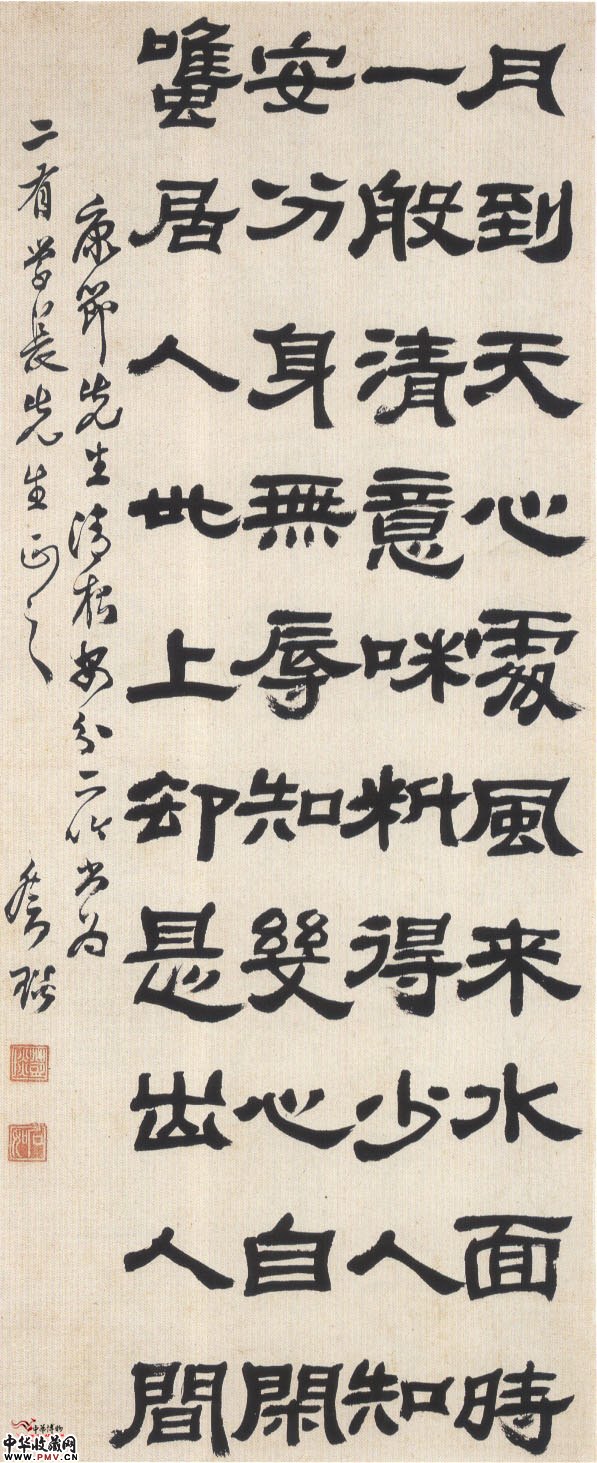 月到天心處風来水面時
一般清意味料得少人知
安分身無辱知幾心自閑
雖居人世上却是出人間
康節先生清夜安分二吟书为
二有学長先生正之
中华博物
中华收藏网
www.PMV.CN